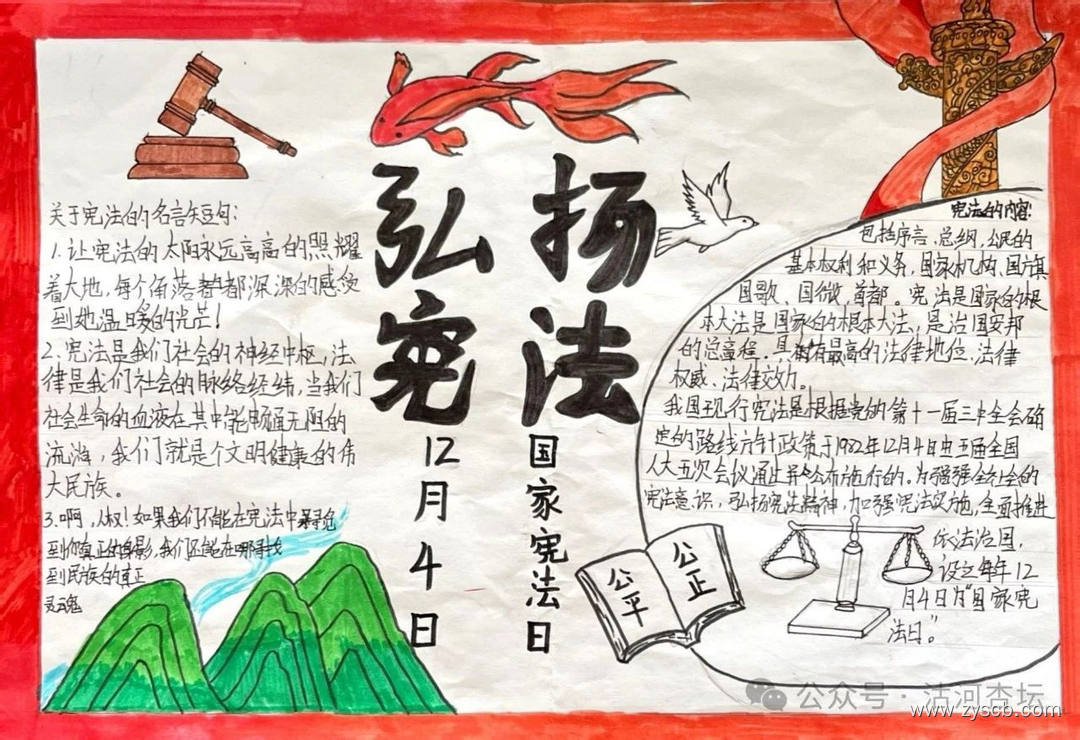 关于宪法的名言短句:
1.让宪法的太阳永远高高的照耀
着大地,每个角落都深深的感受
到她温暖的光芒!
2、宪法是我们社会的神经中枢,法
律是我们社会的脉络经络,当我们
社会生命的血液在其中能畅通无阻的
流淌,我们就是个文明健康的伟
大民族。
3.啊,人权!如果我们不能在宪法中寻觅
到你真正的身影,我们还能在哪寻找
到民族的真正
灵魂
弘扬
宪法
12月4日
国家宪法日
宪法的内容:
包括序言、总纲,公民的
基本权利和义务,国家机构、国旗
国歌、国徽,首都。宪法是国家的根
本大法是国家的根本大法,是治国安邦
的总章程。具有最高的法律地位、法律
权威、法律效力。
我国现行宪法是根据党的第十一届三中全会确
定的路线方针政策于1982年12月4日由五届全国
人大五次会议通过并公布施行的。为增强全社会的
宪法意识,弘扬宪法精神,加强宪法实施,全面推进
依法治国,
设立每年12
月4日为“国家宪
法日。”
公平
公正
公众号·沽河杏坛
www.zyscb.com